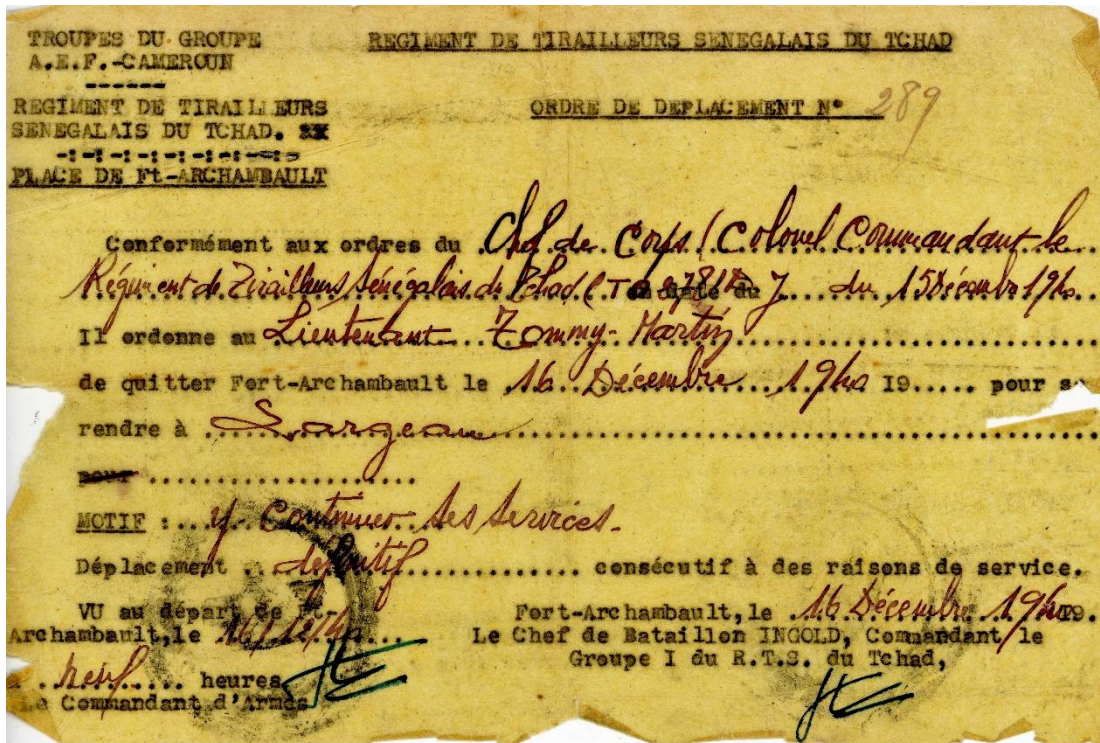 TROUPES DU GROUPE
A.E.F.-CAMEROUN
REGIMENT DE TIRAILLEURS
SENEGALAIS DU TCHAD. XX
PLACE DE Ft-ARCHAMBAULT
REGIMENT DE TIRAILLEURS SENEGALAIS DU TCHAD
ORDRE DE DEPLACEMENT N° 289
Conformément aux ordres du Chef de Corps (Colonel Commandant le
Régiment de Tirailleurs Sénégalais du Tchad (TO en date du 7 du 15 Décembre 1940
Il ordonne au Lieutenant Tommy-Martin
de quitter Fort-Archambault le 16 Décembre 1940 I9..... pour se
rendre à Largeau
pour
MOTIF : y Continuer ses services-
Déplacement définitif consécutif à des raisons de service.
VU au départ de Ft-
Archambault, le
neuf heures
Le Commandant d'Armes
Fort-Archambault, le 16 Décembre 1940 I9.
Le Chef de Bataillon INGOLD, Commandant le
Groupe I du R.T.S. du Tchad,